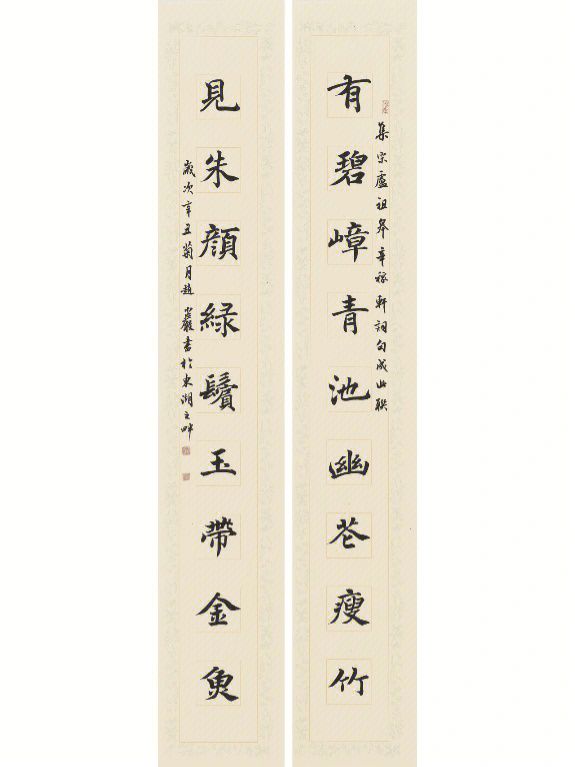 集宋盧祖皋辛稼軒詞句成此聯
有碧嶂青池幽花瘦竹
見朱顔緑鬢玉帶金魚
歲次辛丑菊月趙巖書於東湖之畔